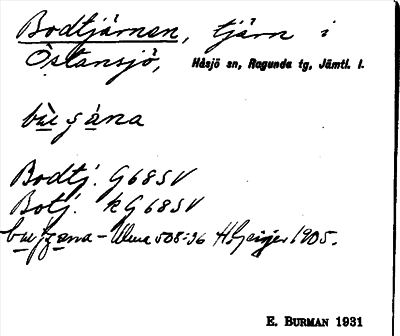 Bodtjärnen, tjärn i
Östansjö, Håsjö sn, Ragunda tg, Jämtl. l.
Bodtj. G68SV
Botj. k G68SV
508:36 H. Geijer 1905.
E. BURMAN 1931